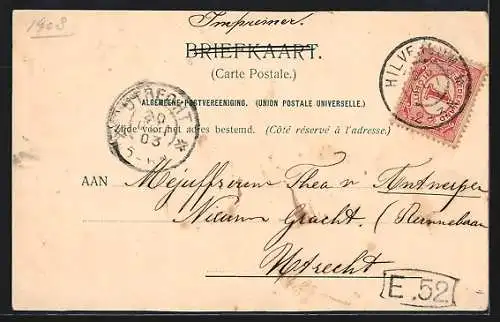 1903
Imprimer.
BRIEFKAART.
(Carte Postale.)
ALGEMEENE POSTVEREENIGING. (UNION POSTALE UNIVERSELLE.)
Zijde voor het adres bestemd. (Côté réservé à l'adresse.)
UTRECHT
03
HILVE
1
AAN Mejuffrouw Thea v. Antwerpen
Nieuwe Gracht. (Runnebaan
Utrecht
E.52